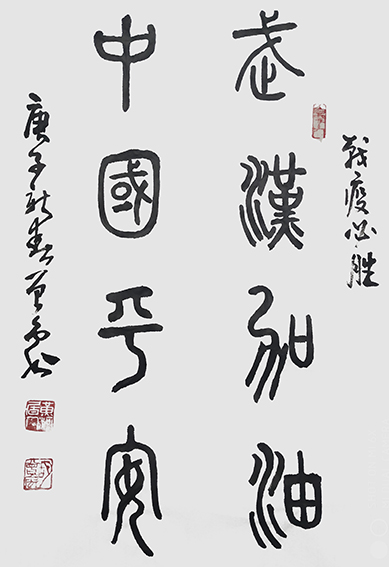 战疫必胜
武漢加油
中國平安
庚子新春